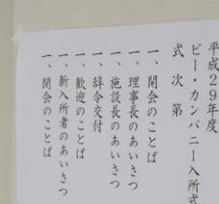 平成29年度
ビー・カンパニー入所式
式次第
一、開会のことば
一、理事長のあいさつ
一、施設長のあいさつ
一、辞令交付
一、歓迎のことば
一、新入所者のあいさつ
一、閉会のことば